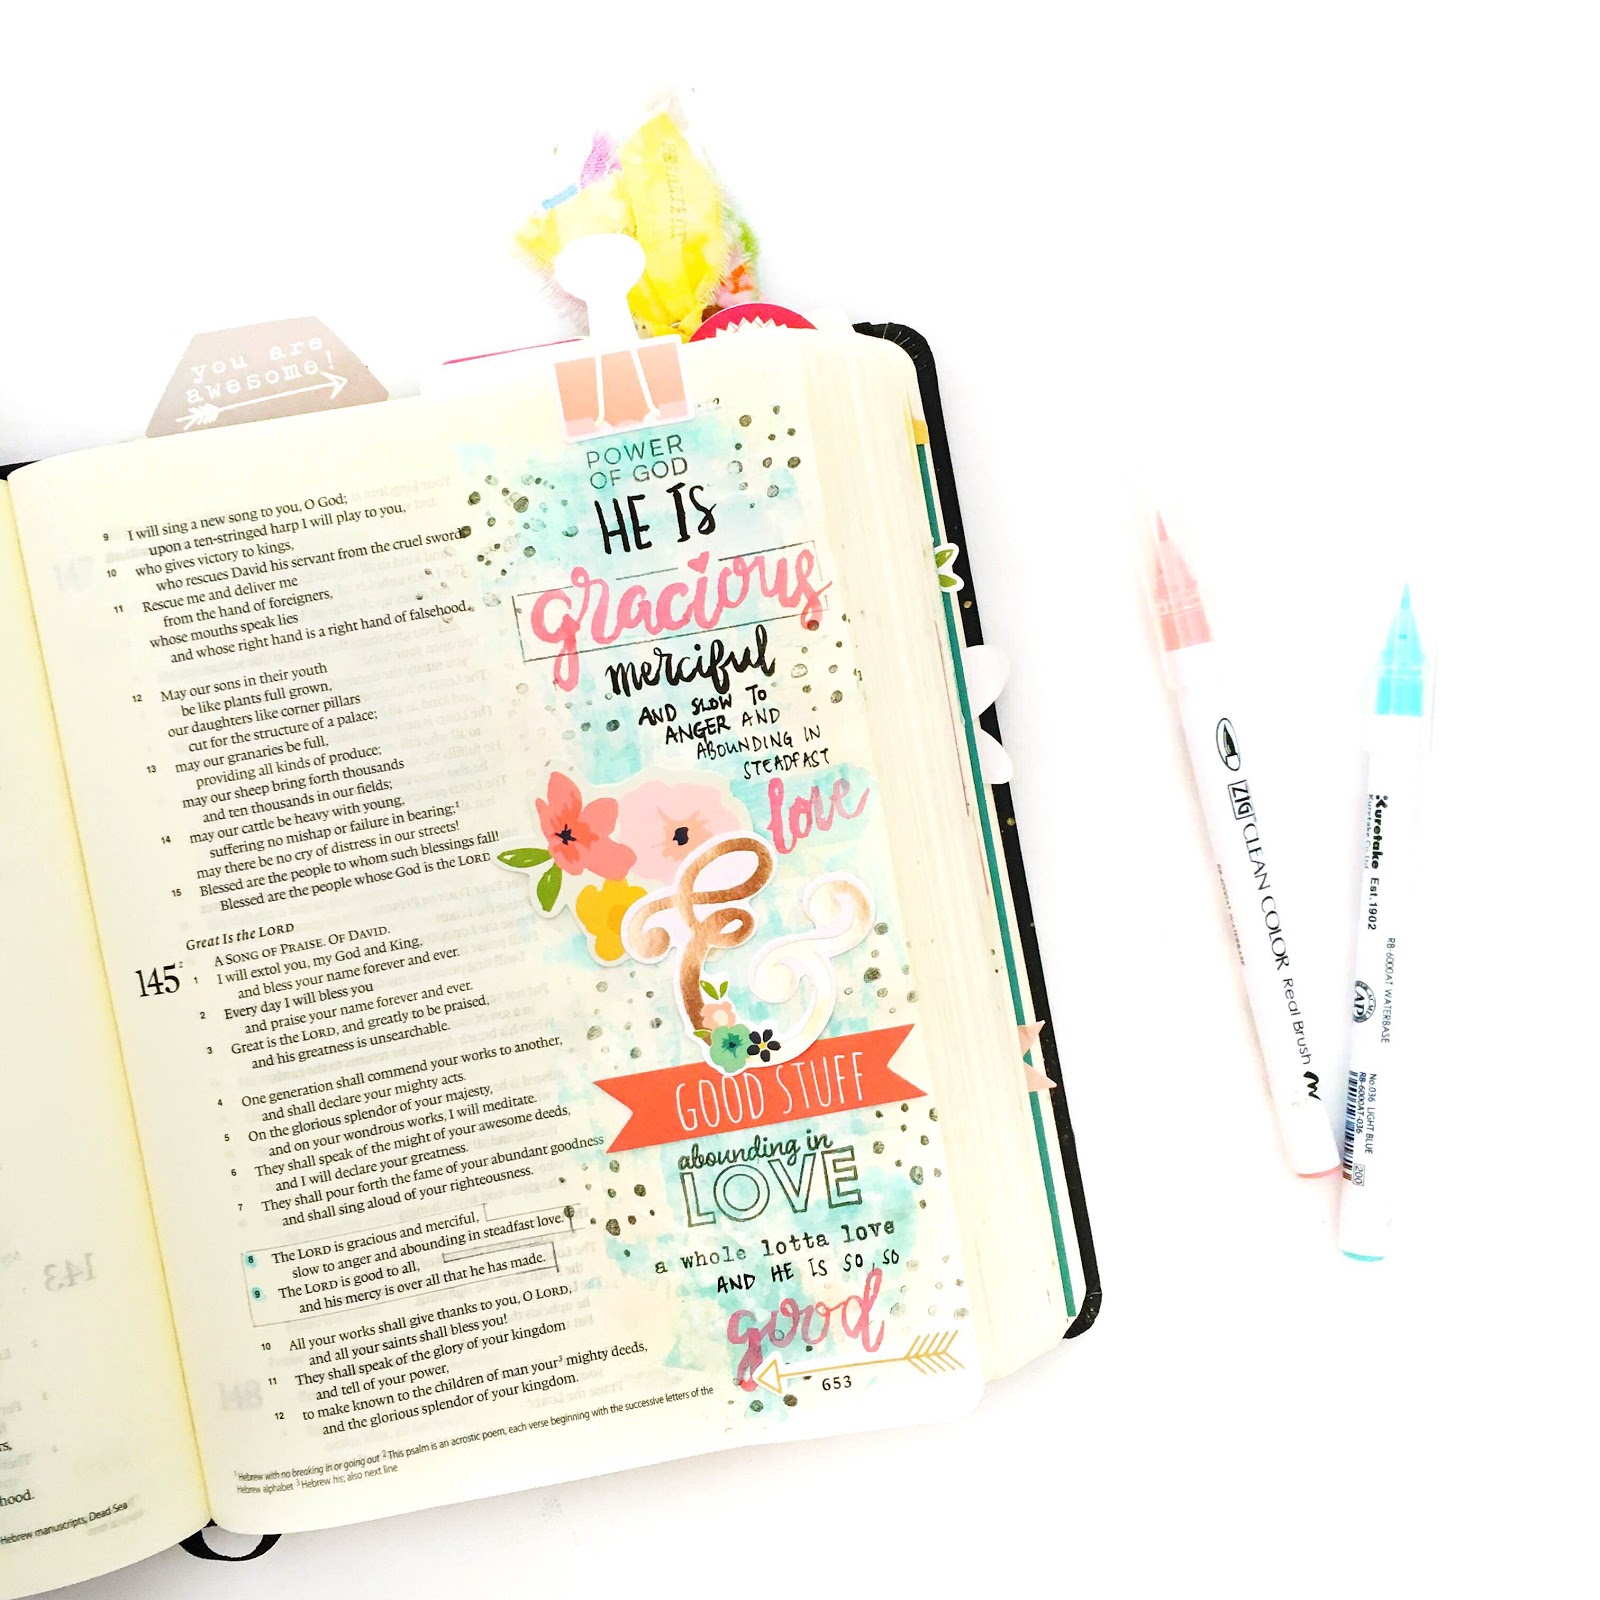 you are
awesome!
9 I will sing a new song to you, O God;
upon a ten-stringed harp I will play to you,
10 who gives victory to kings,
who rescues David his servant from the cruel sword.
11 Rescue me and deliver me
from the hand of foreigners,
whose mouths speak lies
and whose right hand is a right hand of falsehood.
12 May our sons in their youth
be like plants full grown,
our daughters like corner pillars
cut for the structure of a palace;
13 may our granaries be full,
providing all kinds of produce;
may our sheep bring forth thousands
and ten thousands in our fields;
14 may our cattle be heavy with young,
suffering no mishap or failure in bearing;1
may there be no cry of distress in our streets!
15 Blessed are the people to whom such blessings fall!
Blessed are the people whose God is the LORD
Great Is the LORD
145 2
A SONG OF PRAISE. OF DAVID.
1 I will extol you, my God and King,
and bless your name forever and ever.
2 Every day I will bless you
and praise your name forever and ever.
3 Great is the LORD, and greatly to be praised,
and his greatness is unsearchable.
4 One generation shall commend your works to another,
and shall declare your mighty acts.
5 On the glorious splendor of your majesty,
and on your wondrous works, I will meditate.
6 They shall speak of the might of your awesome deeds,
and I will declare your greatness.
7 They shall pour forth the fame of your abundant goodness
and shall sing aloud of your righteousness.
8 The LORD is gracious and merciful,
slow to anger and abounding in steadfast love.
9 The LORD is good to all,
and his mercy is over all that he has made.
10 All your works shall give thanks to you, O LORD,
and all your saints shall bless you!
11 They shall speak of the glory of your kingdom
and tell of your power,
12 to make known to the children of man your3 mighty deeds,
and the glorious splendor of your kingdom.
1 Hebrew with no breaking in or going out 2 This psalm is an acrostic poem, each verse beginning with the successive letters of the
Hebrew alphabet 3 Hebrew his; also next line
hood.
Hebrew manuscripts, Dead Sea
POWER
OF GOD
HE IS
gracious
merciful
AND SLOW TO
ANGER AND
ABOUNDING IN
STEADFAST
love
&
GOOD STUFF
abounding in
LOVE
a whole lotta love
AND HE IS SO, SO
good
653
ZIG CLEAN COLOR Real Brush
Kuretake Est. 1902
Kuretake Co., Ltd.
RB-6000AT WATERBASE
AP
No.036 LIGHT BLUE
RB-6000AT-036
200